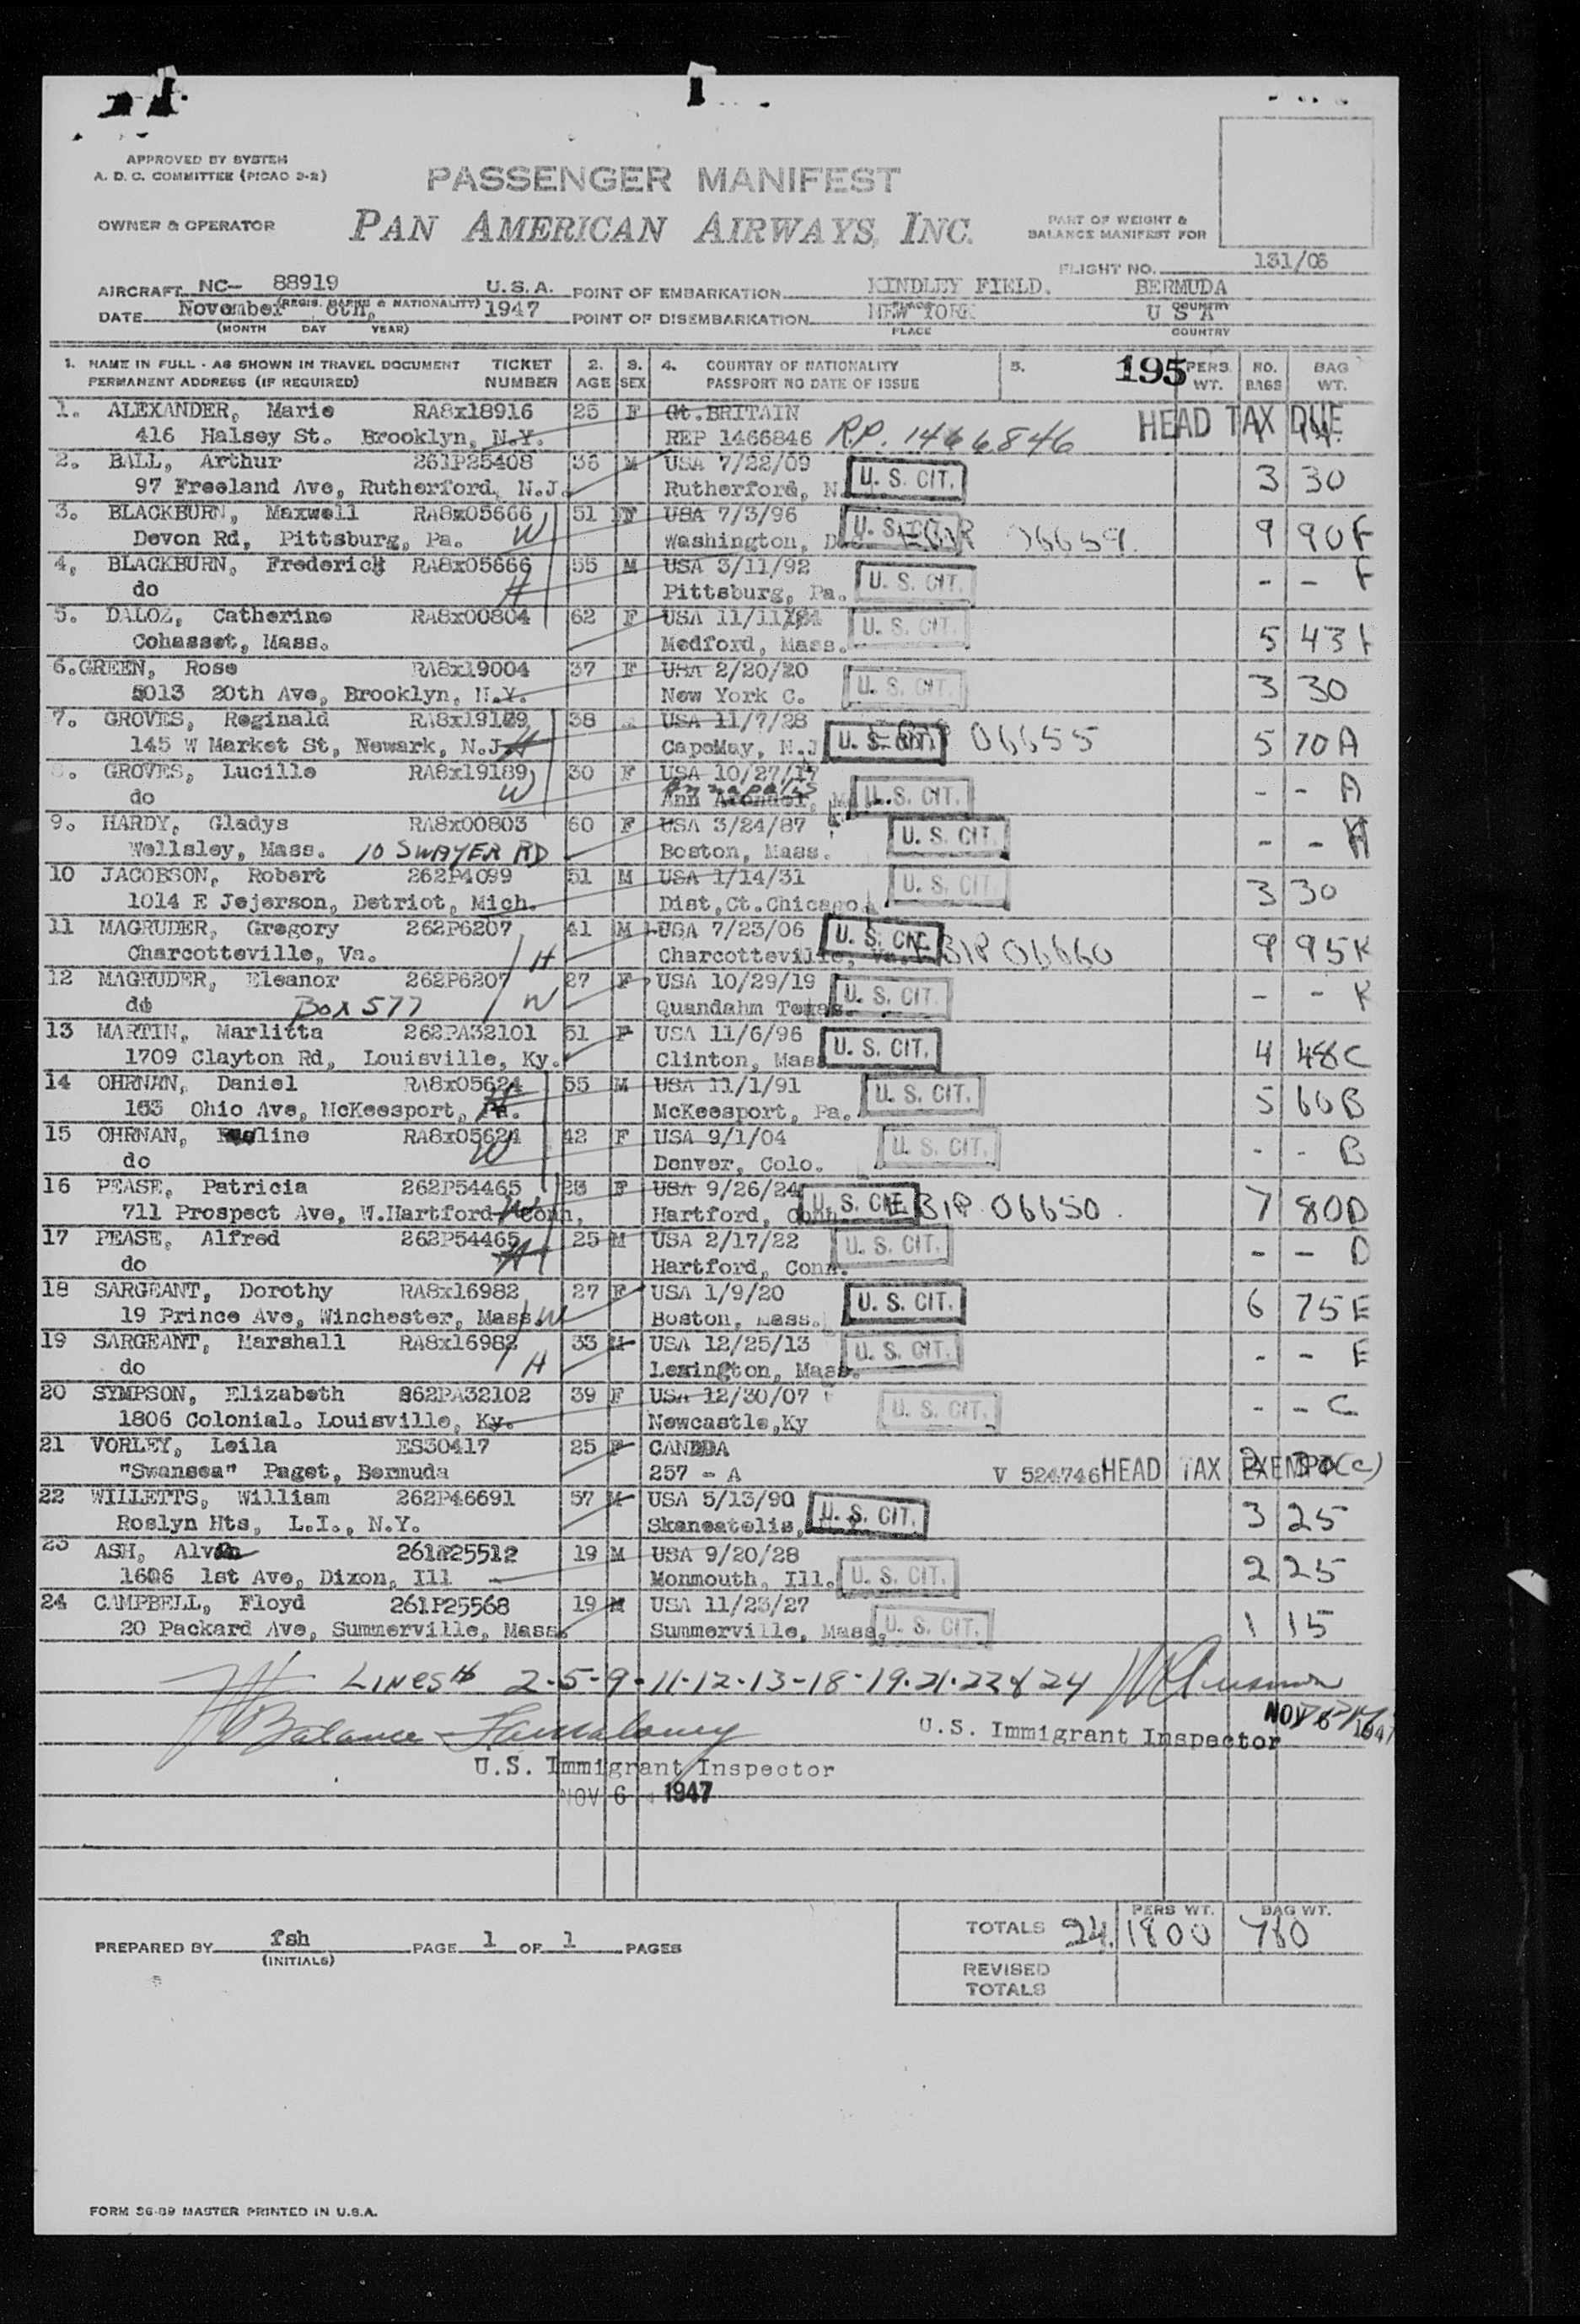 APPROVED BY SYSTEM
A. D. C. COMMITTEE (PICAO 3-2)
PASSENGER MANIFEST
OWNER & OPERATOR PAN AMERICAN AIRWAYS, INC.
PART OF WEIGHT &
BALANCE MANIFEST FOR
FLIGHT NO. 131/06
AIRCRAFT NC- 88919 U.S.A. POINT OF EMBARKATION KINDLEY FIELD. BERMUDA
(REGIS. MARKS & NATIONALITY) PLACE COUNTRY
DATE November 6th, 1947 POINT OF DISEMBARKATION NEW YORK U S A
(MONTH DAY YEAR) PLACE COUNTRY
1. NAME IN FULL - AS SHOWN IN TRAVEL DOCUMENT TICKET 2. 3. 4. COUNTRY OF NATIONALITY 5. 195 PERS NO. BAG
PERMANENT ADDRESS (IF REQUIRED) NUMBER AGE SEX PASSPORT NO DATE OF ISSUE WT. BAGS WT.
1. ALEXANDER, Marie RA8x18916 25 F Gt.BRITAIN HEAD TAX DUE
416 Halsey St. Brooklyn, N.Y. REP 1466846 R.P. 1466846
2. BALL, Arthur 261P25408 36 M USA 7/22/09 U. S. CIT. 3 30
97 Freeland Ave, Rutherford, N.J. Rutherford, N.
3. BLACKBURN, Maxwell RA8x05666 51 F USA 7/3/96 U. S. CIT. 06659 9 90F
Devon Rd, Pittsburg, Pa. W Washington,
4, BLACKBURN, Frederick RA8x05666 55 M USA 3/11/92 U. S. CIT. - - F
do H Pittsburg, Pa.
5. DALOZ, Catherine RA8x00804 62 F USA 11/11/84 U. S. CIT.
Cohasset, Mass. Medford, Mass. 5 43
6.GREEN, Rose RA8x19004 37 F USA 2/20/20 U. S. CIT. 3 30
5013 20th Ave, Brooklyn, N.Y. New York C.
7. GROVES, Reginald RA8x19189 38 USA 11/7/28 U. S. CIT. 06655 5 70A
145 W Market St, Newark, N.J. H CapeMay, N.J
8. GROVES, Lucille RA8x19189 30 F USA 10/27/17 U. S. CIT. - - A
do W Annapolis Ann Arundel,
9. HARDY, Gladys RA8x00803 60 F USA 3/24/87 U. S. CIT. - - H
Wellsley, Mass. 10 SWAYER RD Boston, Mass.
10 JACOBSON, Robert 262P4099 51 M USA 1/14/31 U. S. CIT. 3 30
1014 E Jejerson, Detriot, Mich. Dist,Ct.Chicago.
11 MAGRUDER, Gregory 262P6207 41 M USA 7/23/06 U. S. CIT. 9 95K
Charcotteville, Va. H Charcotteville, Va. BIP 06660
12 MAGRUDER, Eleanor 262P6207 27 F USA 10/29/19 U. S. CIT. - - K
do Box 577 W Quandahm Texas.
13 MARTIN, Marlitta 262PA32101 51 F USA 11/6/96 U. S. CIT. 4 48C
1709 Clayton Rd, Louisville, Ky. Clinton, Mass
14 OHRNAN, Daniel RA8x05624 55 M USA 11/1/91 U. S. CIT. 5 60B
153 Ohio Ave, McKeesport, Pa. McKeesport, Pa.
15 OHRNAN, RA8x05624 42 F USA 9/1/04 U. S. CIT. - - B
do W Denver, Colo.
16 PEASE, Patricia 262P54465 23 F USA 9/26/24 U. S. CIT. BIP 06650. 7 80D
711 Prospect Ave, W.Hartford Conn. W Hartford, Conn
17 PEASE, Alfred 262P54465 25 M USA 2/17/22 U. S. CIT. - - D
do H Hartford, Conn.
18 SARGEANT, Dorothy RA8x16982 27 F USA 1/9/20 U. S. CIT. 6 75E
19 Prince Ave, Winchester, Mass. W Boston, Mass.
19 SARGEANT, Marshall RA8x16982 33 M USA 12/25/13 U. S. CIT. - - E
do H Lexington, Mass.
20 SYMPSON, Elizabeth 262PA32102 39 F USA 12/30/07 U. S. CIT. - - C
1806 Colonial. Louisville, Ky. Newcastle,Ky
21 VORLEY, Leila ES30417 25 F CANADA
"Swansea" Paget, Bermuda 257 - A V 524746 HEAD TAX EXEMPT (c)
22 WILLETTS, William 262P46691 57 M USA 5/13/90 U. S. CIT. 3 25
Roslyn Hts, L.I., N.Y. Skaneatelis,
23 ASH, 261P25512 19 M USA 9/20/28 U. S. CIT. 2 25
1606 1st Ave, Dixon, Ill Monmouth, Ill.
24 CAMPBELL, Floyd 261P25568 19 M USA 11/23/27 U. S. CIT. 1 15
20 Packard Ave, Summerville, Mass. Summerville, Mass.
LINES# 2-5-9-11-12-13-18-19-21-22 & 24
Balance
U.S. Immigrant Inspector NOV 6 1947
U.S. Immigrant Inspector
NOV 6 1947
PERS WT. BAG WT.
TOTALS 24 1800 760
PREPARED BY fsh PAGE 1 OF 1 PAGES
(INITIALS)
REVISED
TOTALS
FORM 36-89 MASTER PRINTED IN U.S.A.